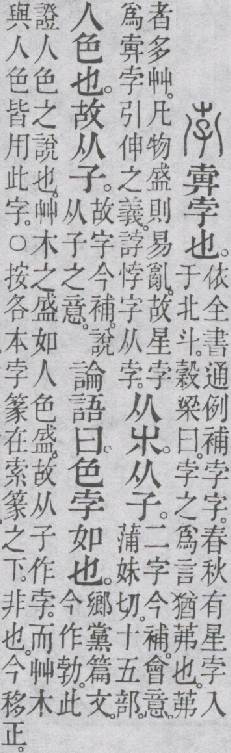 孛 𡴀孛也。依全書通例補孛字。春秋有星孛入于北斗。穀梁曰。孛之爲言猶茀也。茀
者多艸。凡物盛則易亂。故星孛爲𡴀孛引伸之義。誖悖字从孛。从𣎵。从子。二字今補。會意。蒲妹切。十五部。
人色也。故从子。故字今補。說从子之意。論語曰。色孛如也。鄉黨篇文。今作勃。此
證人色之說也。艸木之盛如人色盛。故从子作孛。而艸木與人色皆用此字。○按各本孛篆在索篆之下。非也。今移正。